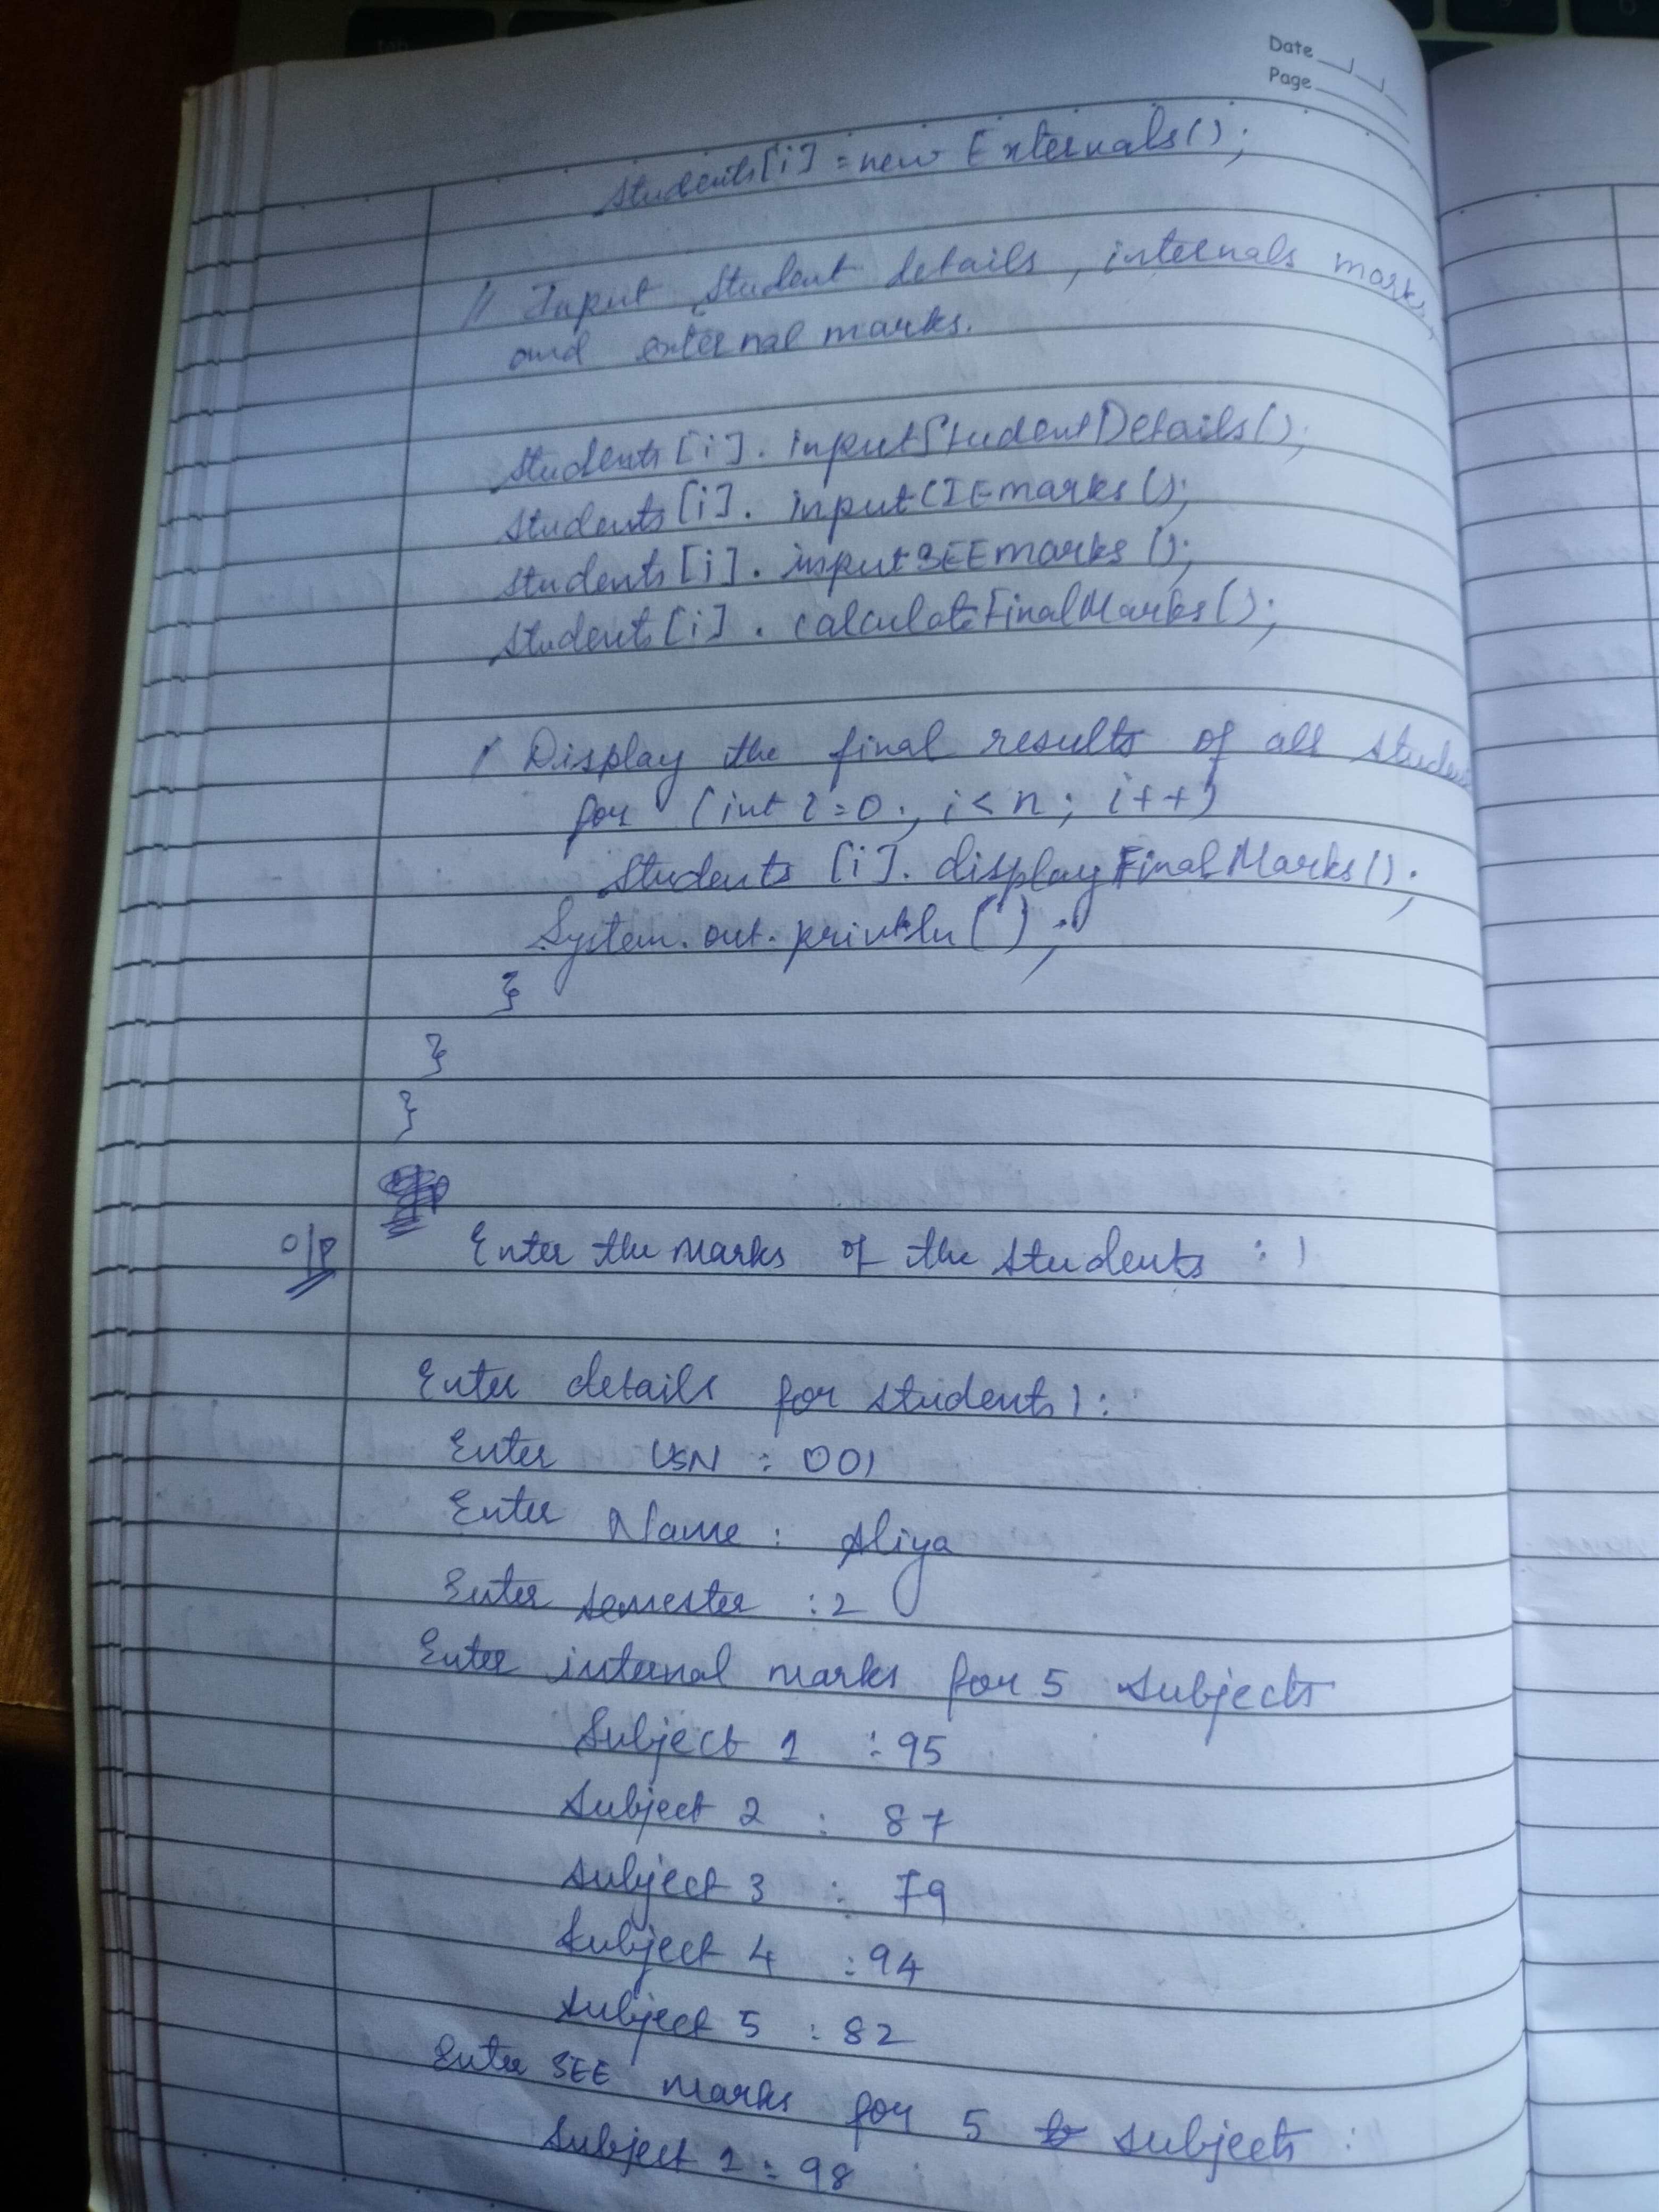 Date
Page
Students[i] = new Externals();
// Input Student details, internals marks,
and external marks.
Students [i]. inputStudentDetails();
Students [i]. inputCIEmarks ();
Students [i]. inputSEEmarks ();
Students [i]. calculateFinalMarks();
/ Display the final results of all Studen
for (int i=0; i<n; i++)
Students [i]. displayFinalMarks();
System.out.println(");
}
}
}
O/P Enter the marks of the Students : 1
Enter details for students 1:
Enter USN : 001
Enter Name : Aliya
Enter semester : 2
Enter internal marks for 5 subjects
Subject 1 : 95
Subject 2 : 87
Subject 3 : 79
Subject 4 : 94
Subject 5 : 82
Enter SEE marks for 5 subjects :
Subject 1 : 98